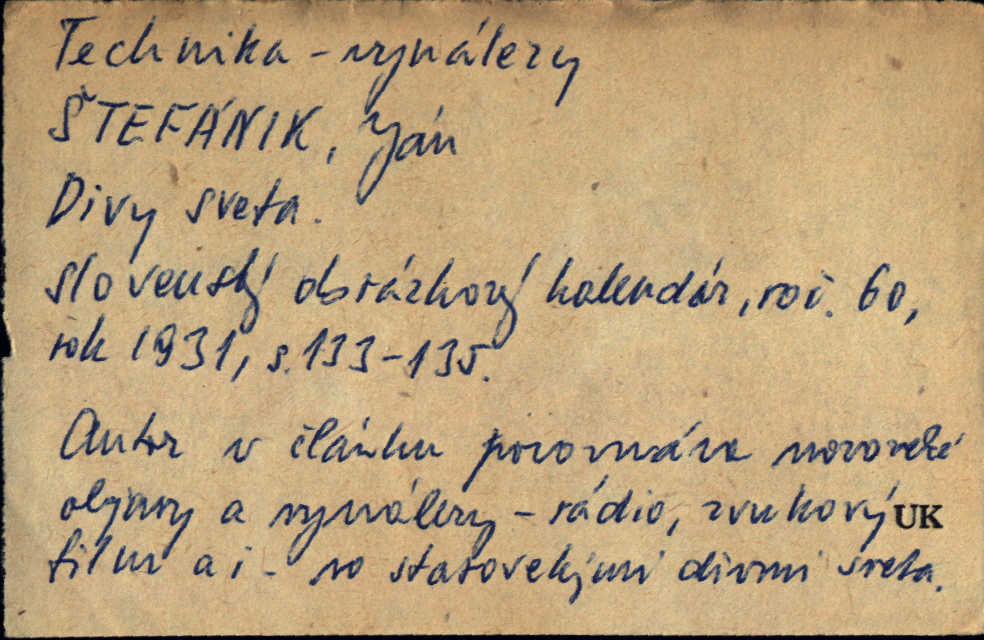 Technika - vynálezy
ŠTEFÁNIK, Ján
Divy sveta.
Slovenský obrázkový kalendár, roč. 60,
rok 1931, s. 133-135.
Autor v článku porovnáva novoveké
objavy a vynálezy - rádio, zvukový UK
film a i - so starovekými divmi sveta.